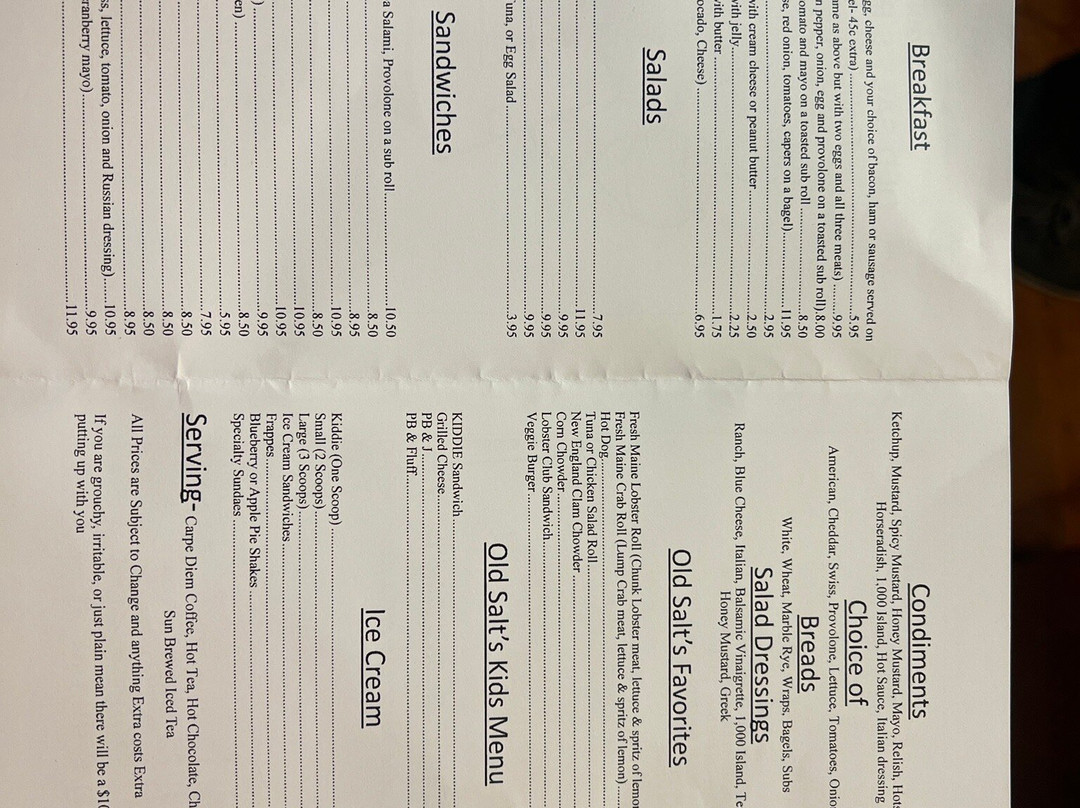 Breakfast
gg, cheese and your choice of bacon, ham or sausage served on
el- 45c extra)..........5.95
ame as above but with two eggs and all three meats) ..........9.95
n pepper, onion, egg and provolone on a toasted sub roll).8.00
omato and mayo on a toasted sub roll ..........8.50
se, red onion, tomatoes, capers on a bagel)..........11.95
..........2.95
with cream cheese or peanut butter..........2.50
with jelly..........2.25
with butter..........1.75
ocado, Cheese) ..........6.95
Salads
..........7.95
..........11.95
..........9.95
..........9.95
..........9.95
una, or Egg Salad..........3.95
Sandwiches
a Salami, Provolone on a sub roll..........10.50
..........8.50
..........8.95
..........10.95
..........8.50
..........10.95
..........10.95
)..........9.95
en)..........8.50
..........5.95
..........7.95
..........8.50
..........8.50
..........8.50
..........8.95
ss, lettuce, tomato, onion and Russian dressing)..........10.95
ranberry mayo)..........9.95
..........11.95
Condiments
Ketchup, Mustard, Spicy Mustard, Honey Mustard, Mayo, Relish, Hot
Horseradish, 1,000 Island, Hot Sauce, Italian dressing
Choice of
American, Cheddar, Swiss, Provolone, Lettuce, Tomatoes, Onio
Breads
White, Wheat, Marble Rye, Wraps, Bagels, Subs
Salad Dressings
Ranch, Blue Cheese, Italian, Balsamic Vinaigrette, 1,000 Island, Te
Honey Mustard, Greek
Old Salt's Favorites
Fresh Maine Lobster Roll (Chunk Lobster meat, lettuce & spritz of lemon
Fresh Maine Crab Roll (Lump Crab meat, lettuce & spritz of lemon)..........
Hot Dog..........
Tuna or Chicken Salad Roll..........
New England Clam Chowder..........
Corn Chowder..........
Lobster Club Sandwich..........
Veggie Burger..........
Old Salt's Kids Menu
KIDDIE Sandwich..........
Grilled Cheese..........
PB & J..........
PB & Fluff..........
Ice Cream
Kiddie (One Scoop)..........
Small (2 Scoops)..........
Large (3 Scoops)..........
Ice Cream Sandwiches..........
Frappes..........
Blueberry or Apple Pie Shakes..........
Specialty Sundaes..........
Serving- Carpe Diem Coffee, Hot Tea, Hot Chocolate, Ch
Sun Brewed Iced Tea
All Prices are Subject to Change and anything Extra costs Extra
If you are grouchy, irritable, or just plain mean there will be a $10
putting up with you